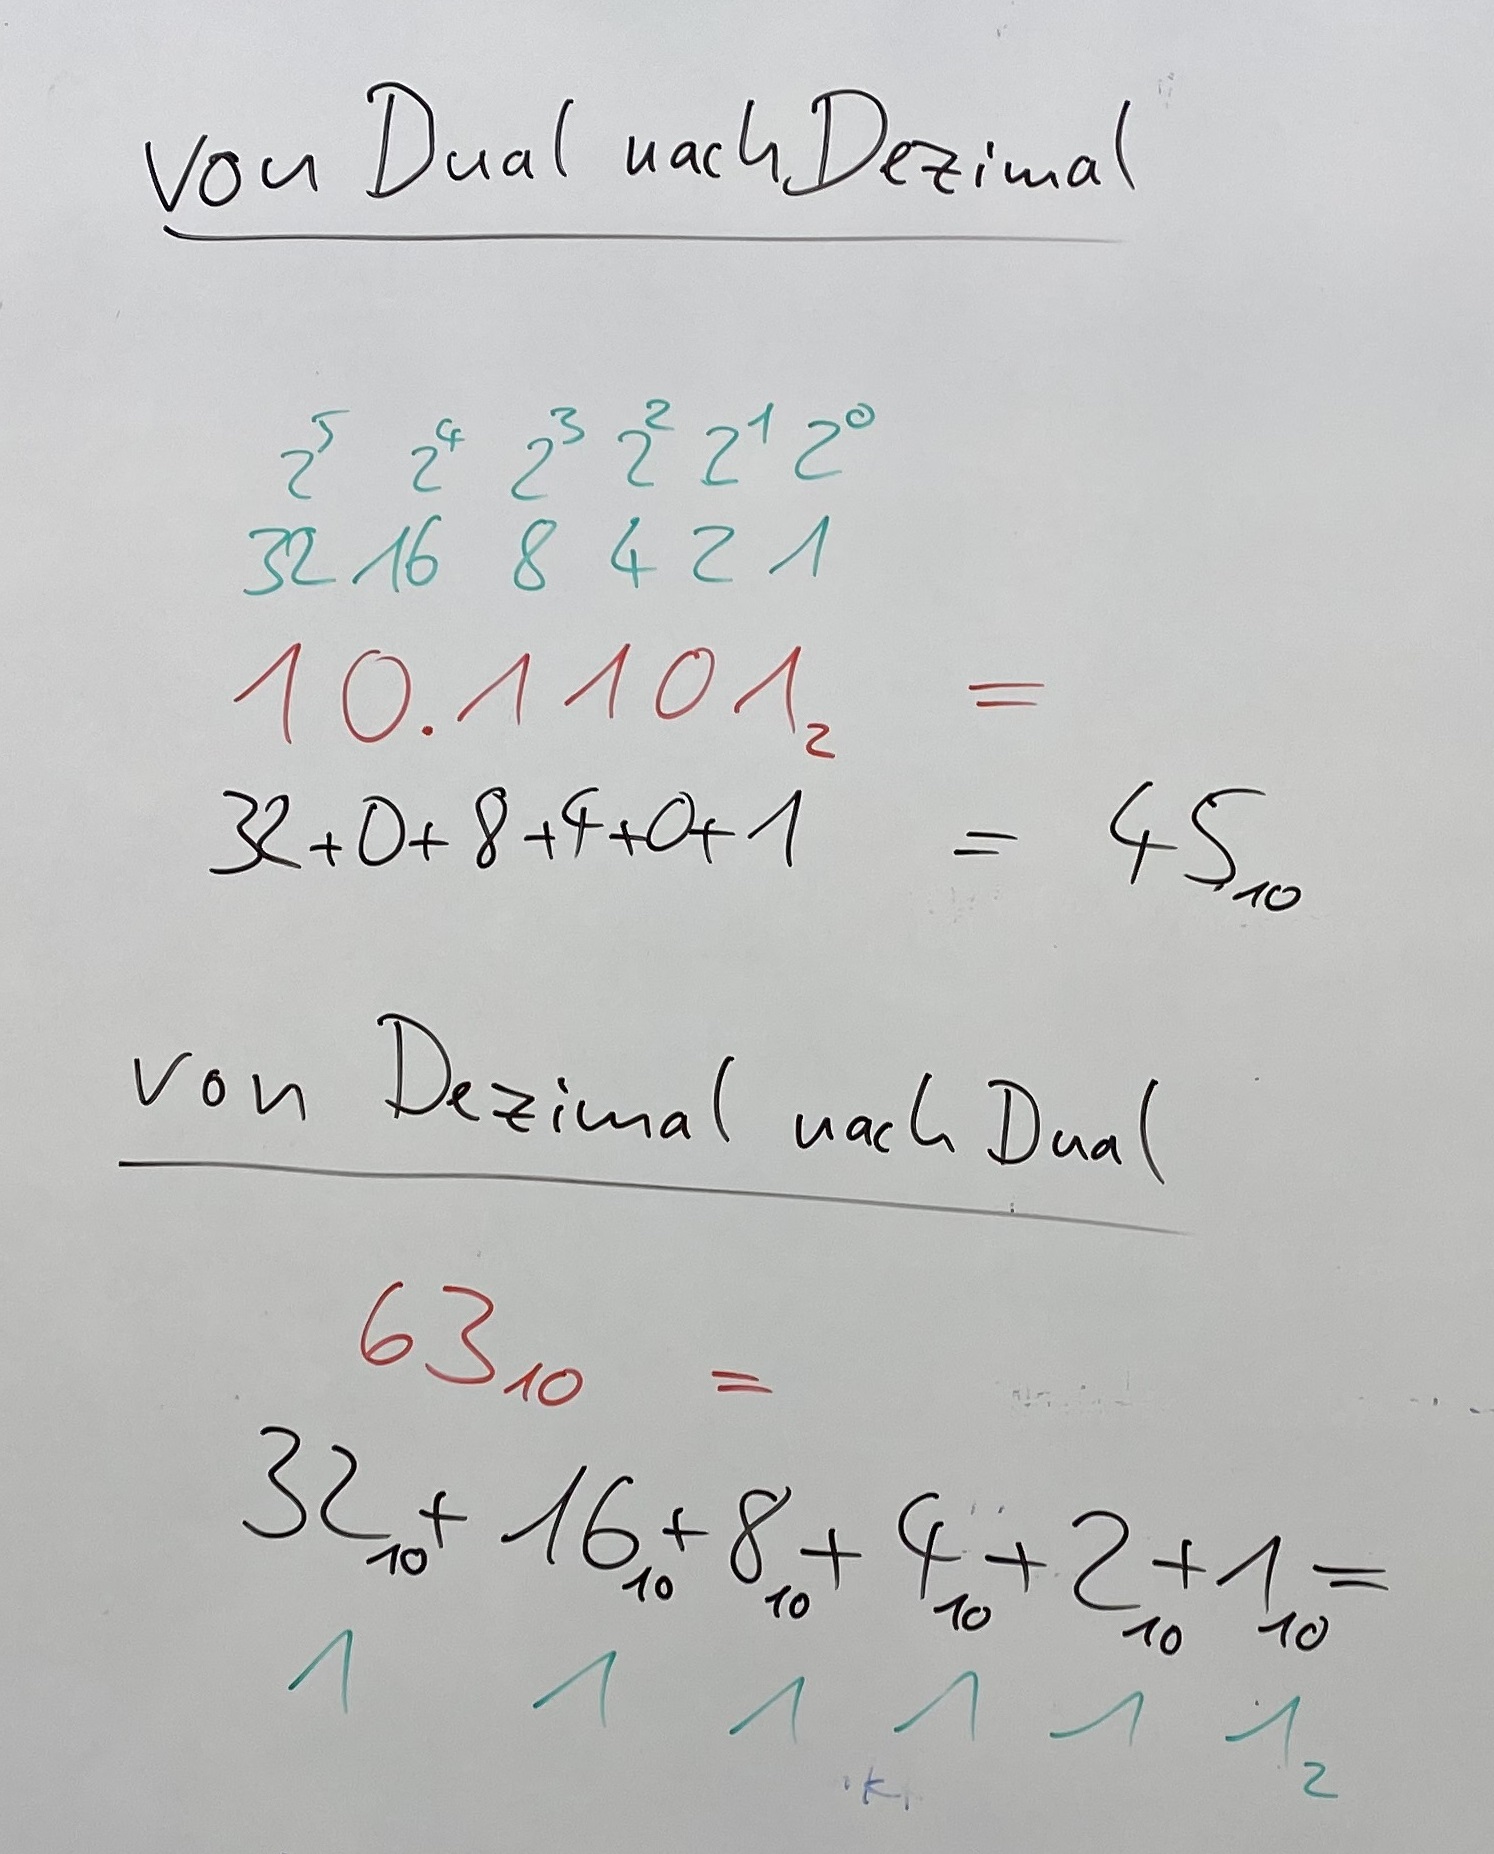 von Dual nach Dezimal
2⁵ 2⁴ 2³ 2² 2¹ 2⁰
32 16 8 4 2 1
10.1101₂ =
32+0+8+4+0+1 = 45₁₀
von Dezimal nach Dual
63₁₀ =
32₁₀+ 16₁₀+ 8₁₀+ 4₁₀+ 2₁₀+ 1₁₀=
1 1 1 1 1 1₂